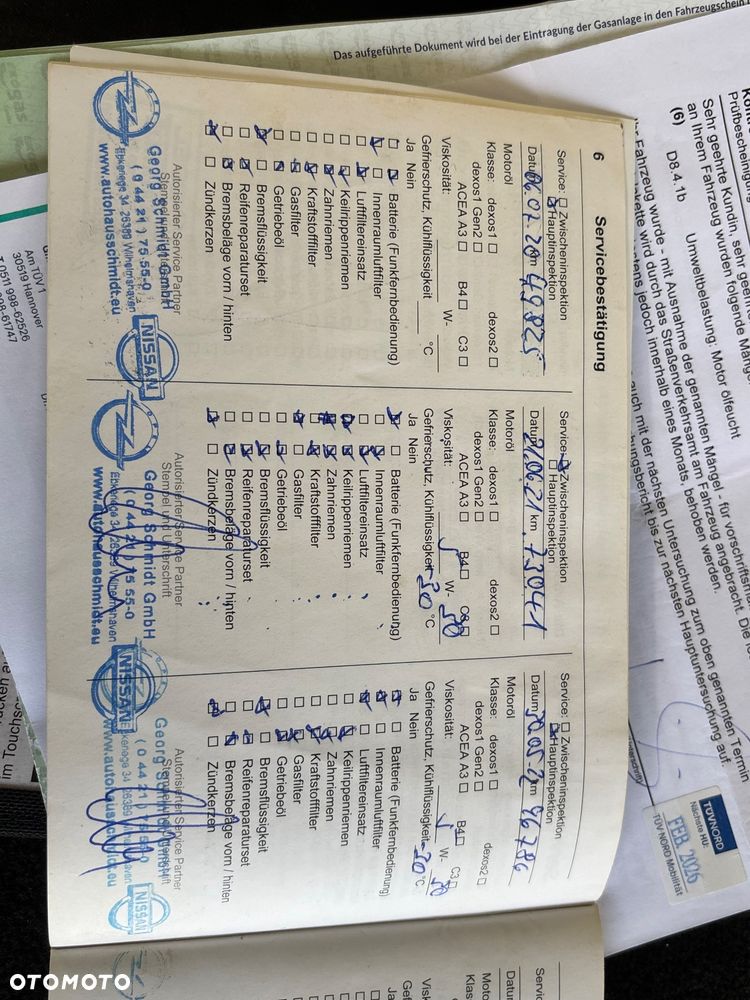 Das aufgeführte Dokument wird bei der Eintragung der Gasanlage in den Fahrzeugschein
Sehr geehrte Kundin, sehr geehrte
an Ihrem Fahrzeug wurden folgende Mängel
(6) D8.4.1b Umweltbelastung: Motor ölfeucht
Fahrzeug wurde - mit Ausnahme der genannten Mängel - für vorschriftsm
wird durch das Straßenverkehrsamt am Fahrzeug angebracht. Die
jedoch innerhalb eines Monats, behoben werden.
auch mit der nächsten Untersuchung zum oben genannten Termin
bis zur nächsten Hauptuntersuchung auf.
TÜV NORD
Nächste HU:
FEB. 2026
TÜV NORD Mobilität
6 Servicebestätigung
Service: Zwischeninspektion
Hauptinspektion
Datum 06.02.20 km 49825
Motoröl
Klasse: dexos1 dexos2
dexos1 Gen2
ACEA A3 B4 C3
Viskosität: W-
Gefrierschutz, Kühlflüssigkeit °C
Ja Nein
Batterie (Funkfernbedienung)
Innenraumluftfilter
Luftfiltereinsatz
Keilrippenriemen
Zahnriemen
Kraftstofffilter
Gasfilter
Getriebeöl
Bremsflüssigkeit
Reifenreparaturset
Bremsbeläge vorn / hinten
Zündkerzen
Autorisierter Service Partner
Stempel und Unterschrift
OPEL
Georg Schmidt GmbH
( 0 44 21 ) 75 55-0
Ebkeriege 34 / 26389 Wilhelmshaven
www.autohausschmidt.eu
NISSAN
Service: Zwischeninspektion
Hauptinspektion
Datum 21.06.21 km 73041
Motoröl
Klasse: dexos1 dexos2
dexos1 Gen2
ACEA A3 B4 C3
Viskosität: 5 W- 30
Gefrierschutz, Kühlflüssigkeit -30 °C
Ja Nein
Batterie (Funkfernbedienung)
Innenraumluftfilter
Luftfiltereinsatz
Keilrippenriemen
Zahnriemen
Kraftstofffilter
Gasfilter
Getriebeöl
Bremsflüssigkeit
Reifenreparaturset
Bremsbeläge vorn / hinten
Zündkerzen
Autorisierter Service Partner
Stempel und Unterschrift
OPEL
Georg Schmidt GmbH
( 0 44 21 ) 75 55-0
Ebkeriege 34 / 26389 Wilhelmshaven
www.autohausschmidt.eu
NISSAN
Service: Zwischeninspektion
Hauptinspektion
Datum km 96786
Motoröl
Klasse: dexos1 dexos2
dexos1 Gen2
ACEA A3 B4 C3
Viskosität: 5 W- 30
Gefrierschutz, Kühlflüssigkeit -30 °C
Ja Nein
Batterie (Funkfernbedienung)
Innenraumluftfilter
Luftfiltereinsatz
Keilrippenriemen
Zahnriemen
Kraftstofffilter
Gasfilter
Getriebeöl
Bremsflüssigkeit
Reifenreparaturset
Bremsbeläge vorn / hinten
Zündkerzen
Autorisierter Service Partner
OPEL
Georg Schmidt GmbH
( 0 44 21 ) 75 55-0
Ebkeriege 34 26389
www.autohausschmidt.eu
NISSAN
Am TÜV 1
30519 Hannover
T.0511 998-62526
998-61747
OTOMOTO